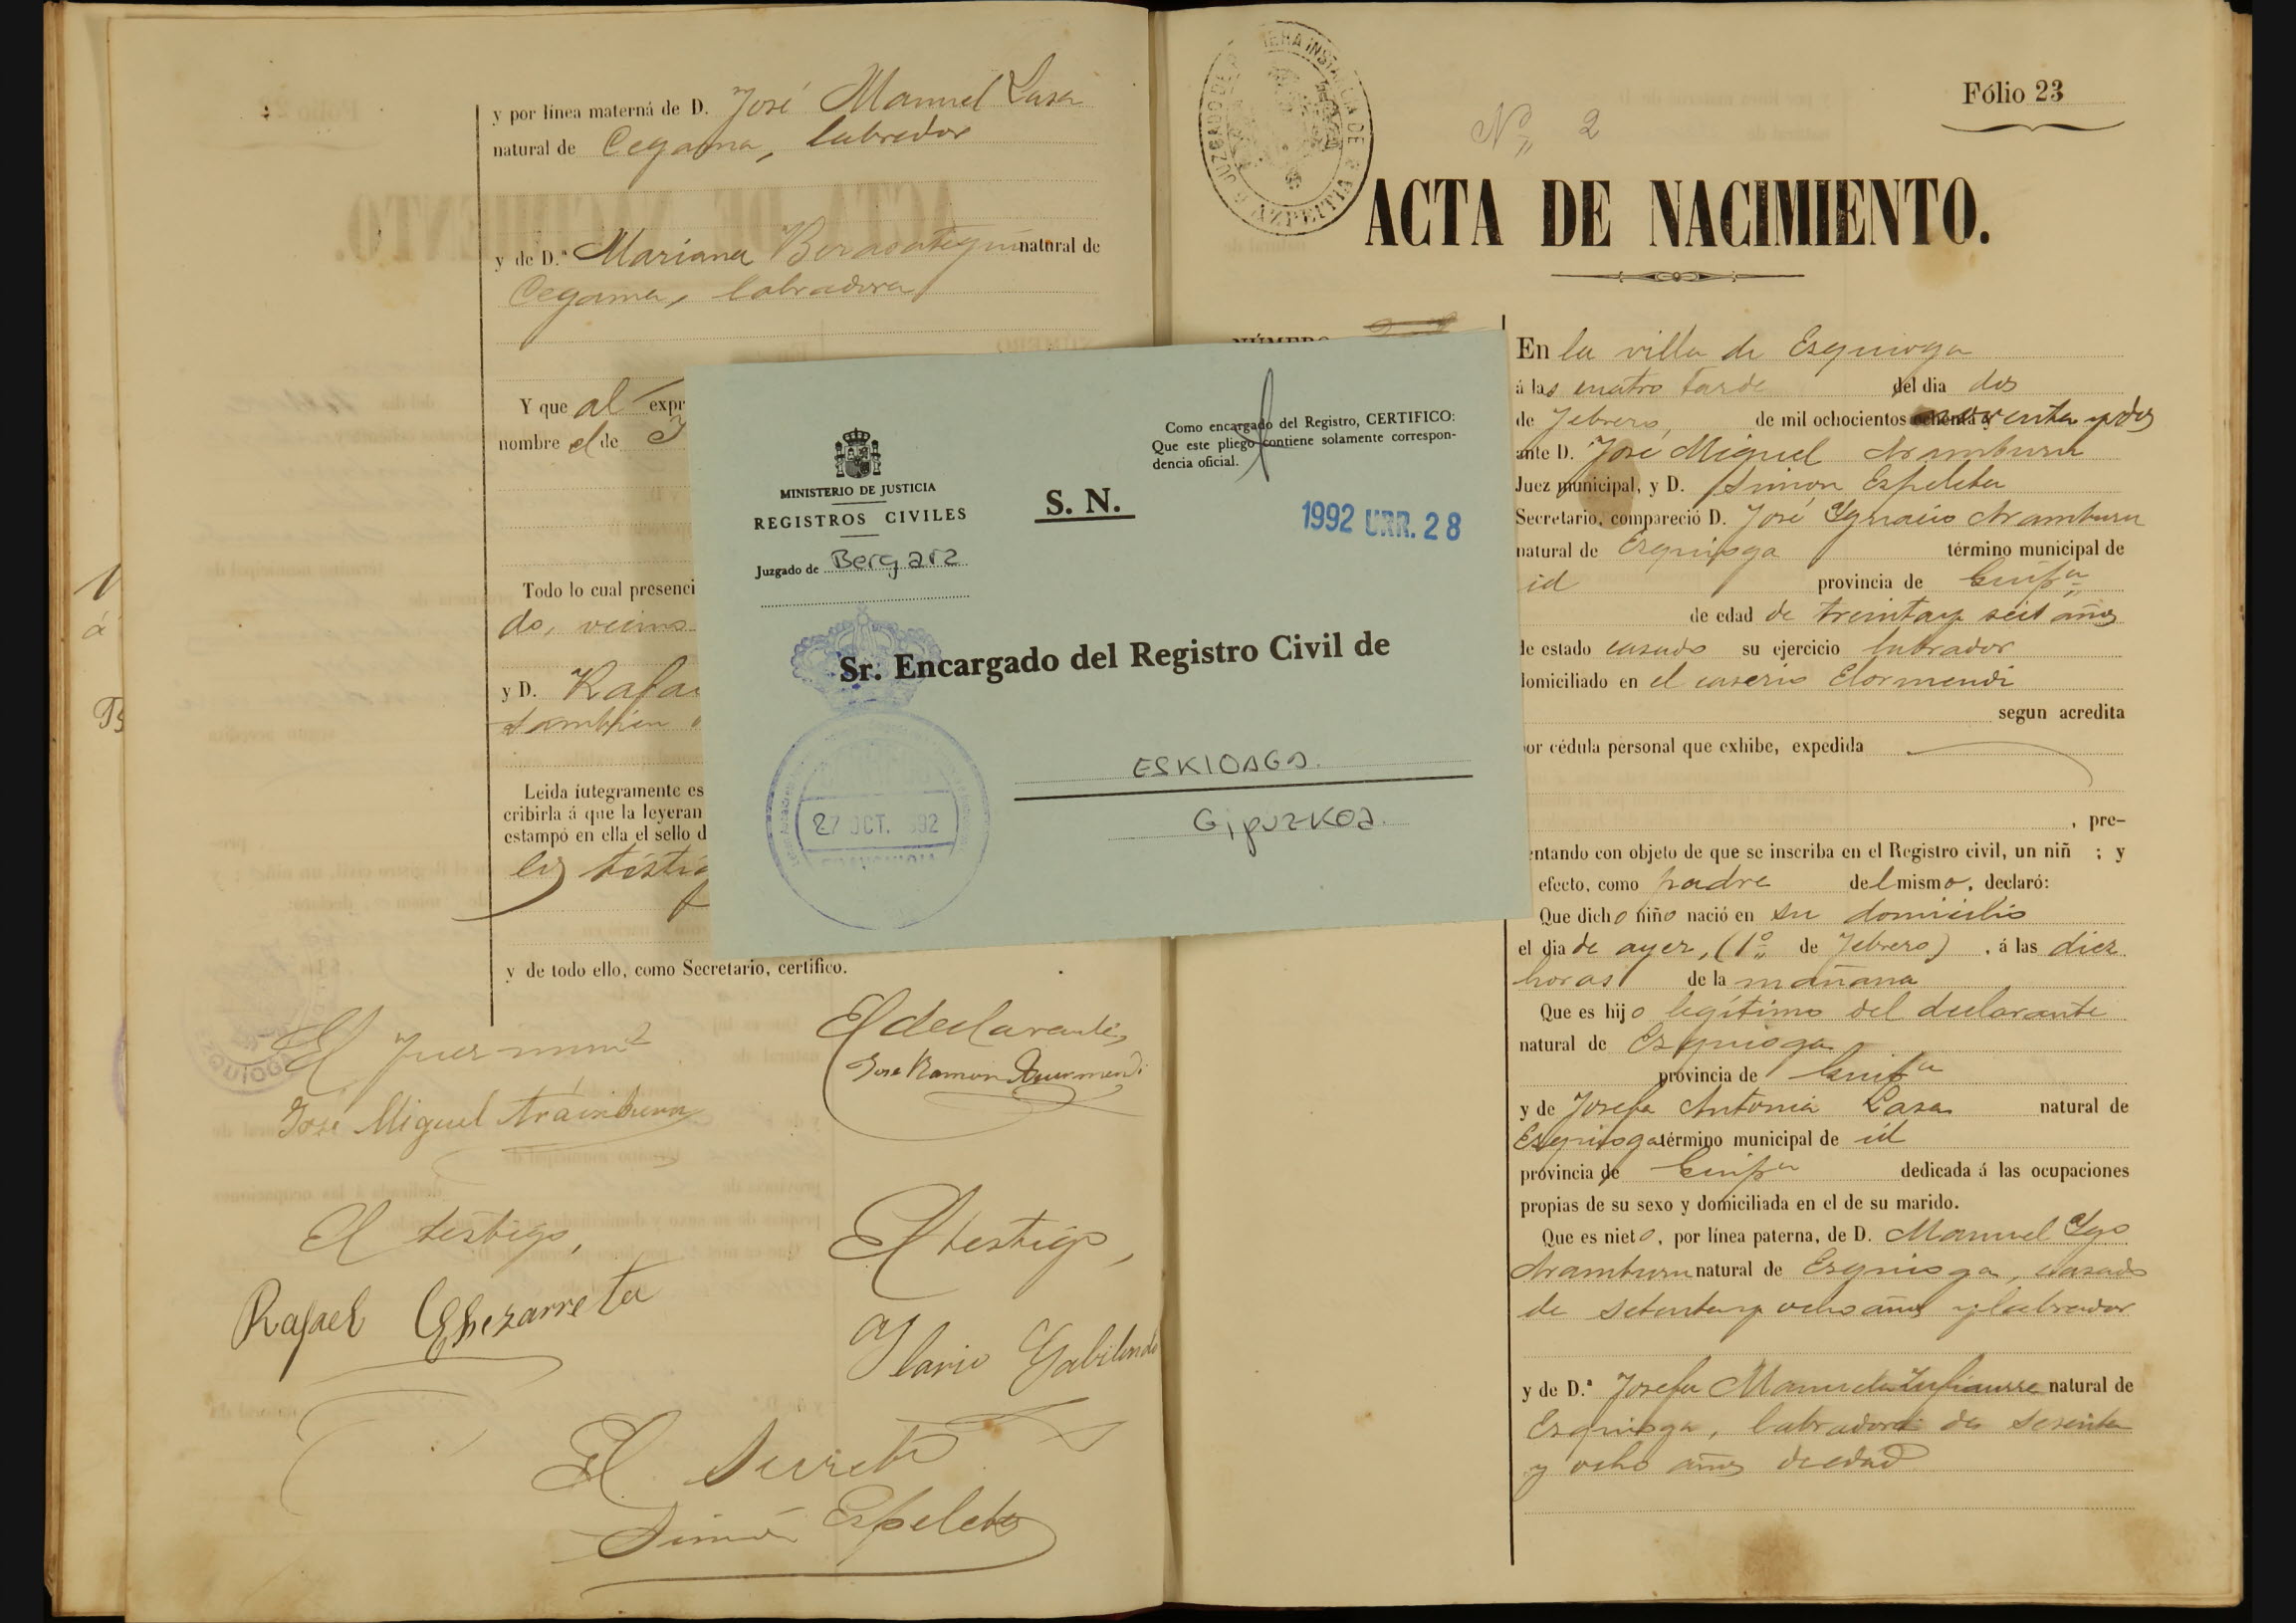 y por línea materna de D. José Manuel Lasa
natural de Cegama, labrador
y de D.ª Mariana Berasategui natural de
Cegama, labradora
Y que al expr
nombre el de J
Todo lo cual presenci
do, vecino
y D. Rafae
tambien
Leida íntegramente es
cribirla á que la leyeran
estampó en ella el sello d
los testig
y de todo ello, como Secretario, certifico.
El Juez munl
José Miguel Aramburu
El declarante,
José Ramon Aurmendi
El testigo,
Rafael Echezarreta
El testigo,
Ylario Gabilondo
El Secreto
Simón Espeleta
MINISTERIO DE JUSTICIA
REGISTROS CIVILES
Juzgado de Bergara
S. N.
Como encargado del Registro, CERTIFICO:
Que este pliego contiene solamente correspon-
dencia oficial.
1992 URR. 28
Sr. Encargado del Registro Civil de
27 OCT. 1992
ESKIOAGA.
Gipuzkoa.
JUZGADO DE PRIMERA INSTANCIA DE AZPEITIA
Nº 2
Fólio 23
ACTA DE NACIMIENTO.
NÚMERO
En la villa de Ezquioga
á las cuatro tarde del dia dos
de Febrero, de mil ochocientos noventa y dos
ante D. José Miguel Aramburu
Juez municipal, y D. Simón Espeleta
Secretario, compareció D. José Ygnacio Aramburu
natural de Ezquioga término municipal de
id provincia de Guipca
de edad de treinta y seis años
de estado casado su ejercicio labrador
domiciliado en el caserio Elormendi
segun acredita
por cédula personal que exhibe, expedida
, pre-
entando con objeto de que se inscriba en el Registro civil, un niñ ; y
efecto, como padre del mismo, declaró:
Que dicho niño nació en su domicilio
el dia de ayer, (1º de Febrero) , á las diez
horas de la mañana
Que es hijo legítimo del declarante
natural de Ezquioga
provincia de Guipca
y de Josefa Antonia Lasa natural de
Ezquioga término municipal de id
provincia de Guipca dedicada á las ocupaciones
propias de su sexo y domiciliada en el de su marido.
Que es nieto, por línea paterna, de D. Manuel Ygo
Aramburu natural de Ezquioga, casado
de setenta y ocho años y labrador
y de D.ª Josefa Manuela natural de
Ezquioga, labradora de sesenta
y ocho años de edad